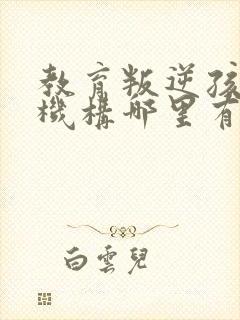 教育叛逆孩
機構哪里有
白雲兒